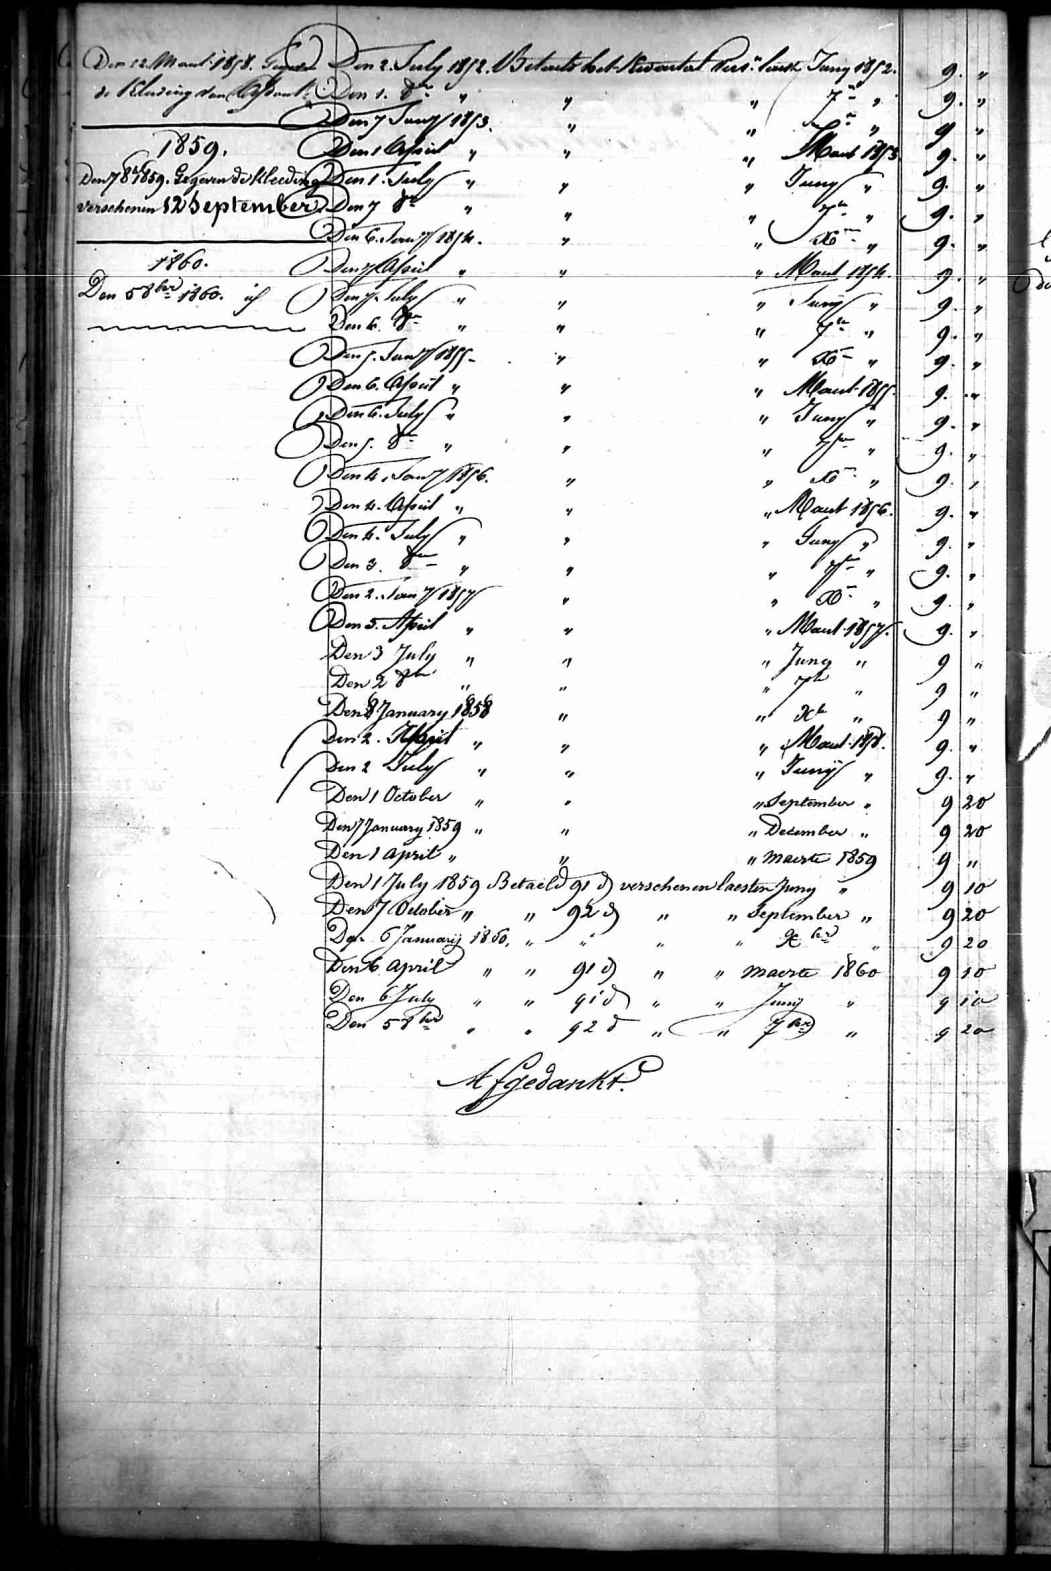 Den 12 Maart 1858. Gegeven
de Kleeding van
1859.
Den 7 8br 1859. Gegeven de Kleeding
verschenen 12 September.
1860.
Den 5 8ber 1860. id
Den 2. July 1852. Betaelt het Kwartael Vers. laest Juny 1852. 9. "
Den 1. 8br " " " 7br " 9. "
Den 7 Jany 1853. " " " 9 "
Den 1 April " " " Maart 1853 9. "
Den 1. July " " " Juny " 9. "
Den 7 8br " " " 7br " 9. "
Den 6. Jany 1854. " " Xbr " 9. "
Den 7 April " " " Maart 1854. 9. "
Den 7. July " " " Juny " 9. "
Den 6. 8br " " " 7br " 9. "
Den 5. Jany 1855 " " Xbr " 9. "
Den 6. April " " " Maart 1855 9. "
Den 6. July " " " Juny " 9. "
Den 5. 8br " " " 7br " 9. "
Den 4. Jany 1856. " " Xbr " 9. "
Den 4. April " " " Maart 1856. 9. "
Den 4. July " " " Juny " 9. "
Den 3. 8br " " " 7br " 9. "
Den 2. Jany 1857 " " Xbr " 9. "
Den 3. April " " " Maart 1857. 9. "
Den 3 July " " " Juny " 9 "
Den 2 8br " " " 7br " 9 "
Den 8 January 1858 " " Xbr " 9 "
Den 2. April " " " Maart 1858. 9. "
Den 2 July " " " Juny " 9. "
Den 1 October " " " September " 9 20
Den 7 January 1859 " " " December " 9 20
Den 1 April " " " maerte 1859 9 "
Den 1 July 1859 Betaeld 91 d verschenen laesten Juny " 9 10
Den 7 October " " 92 d " " September " 9 20
Den 6 Januarij 1860. " " " " Xber " 9 20
Den 6 April " " 91 d " " maerte 1860 9 10
Den 6 July " " 91 d " " Juny " 9 10
Den 5 8ber " " 92 d " " 7ber " 9 20
Afgedankt.